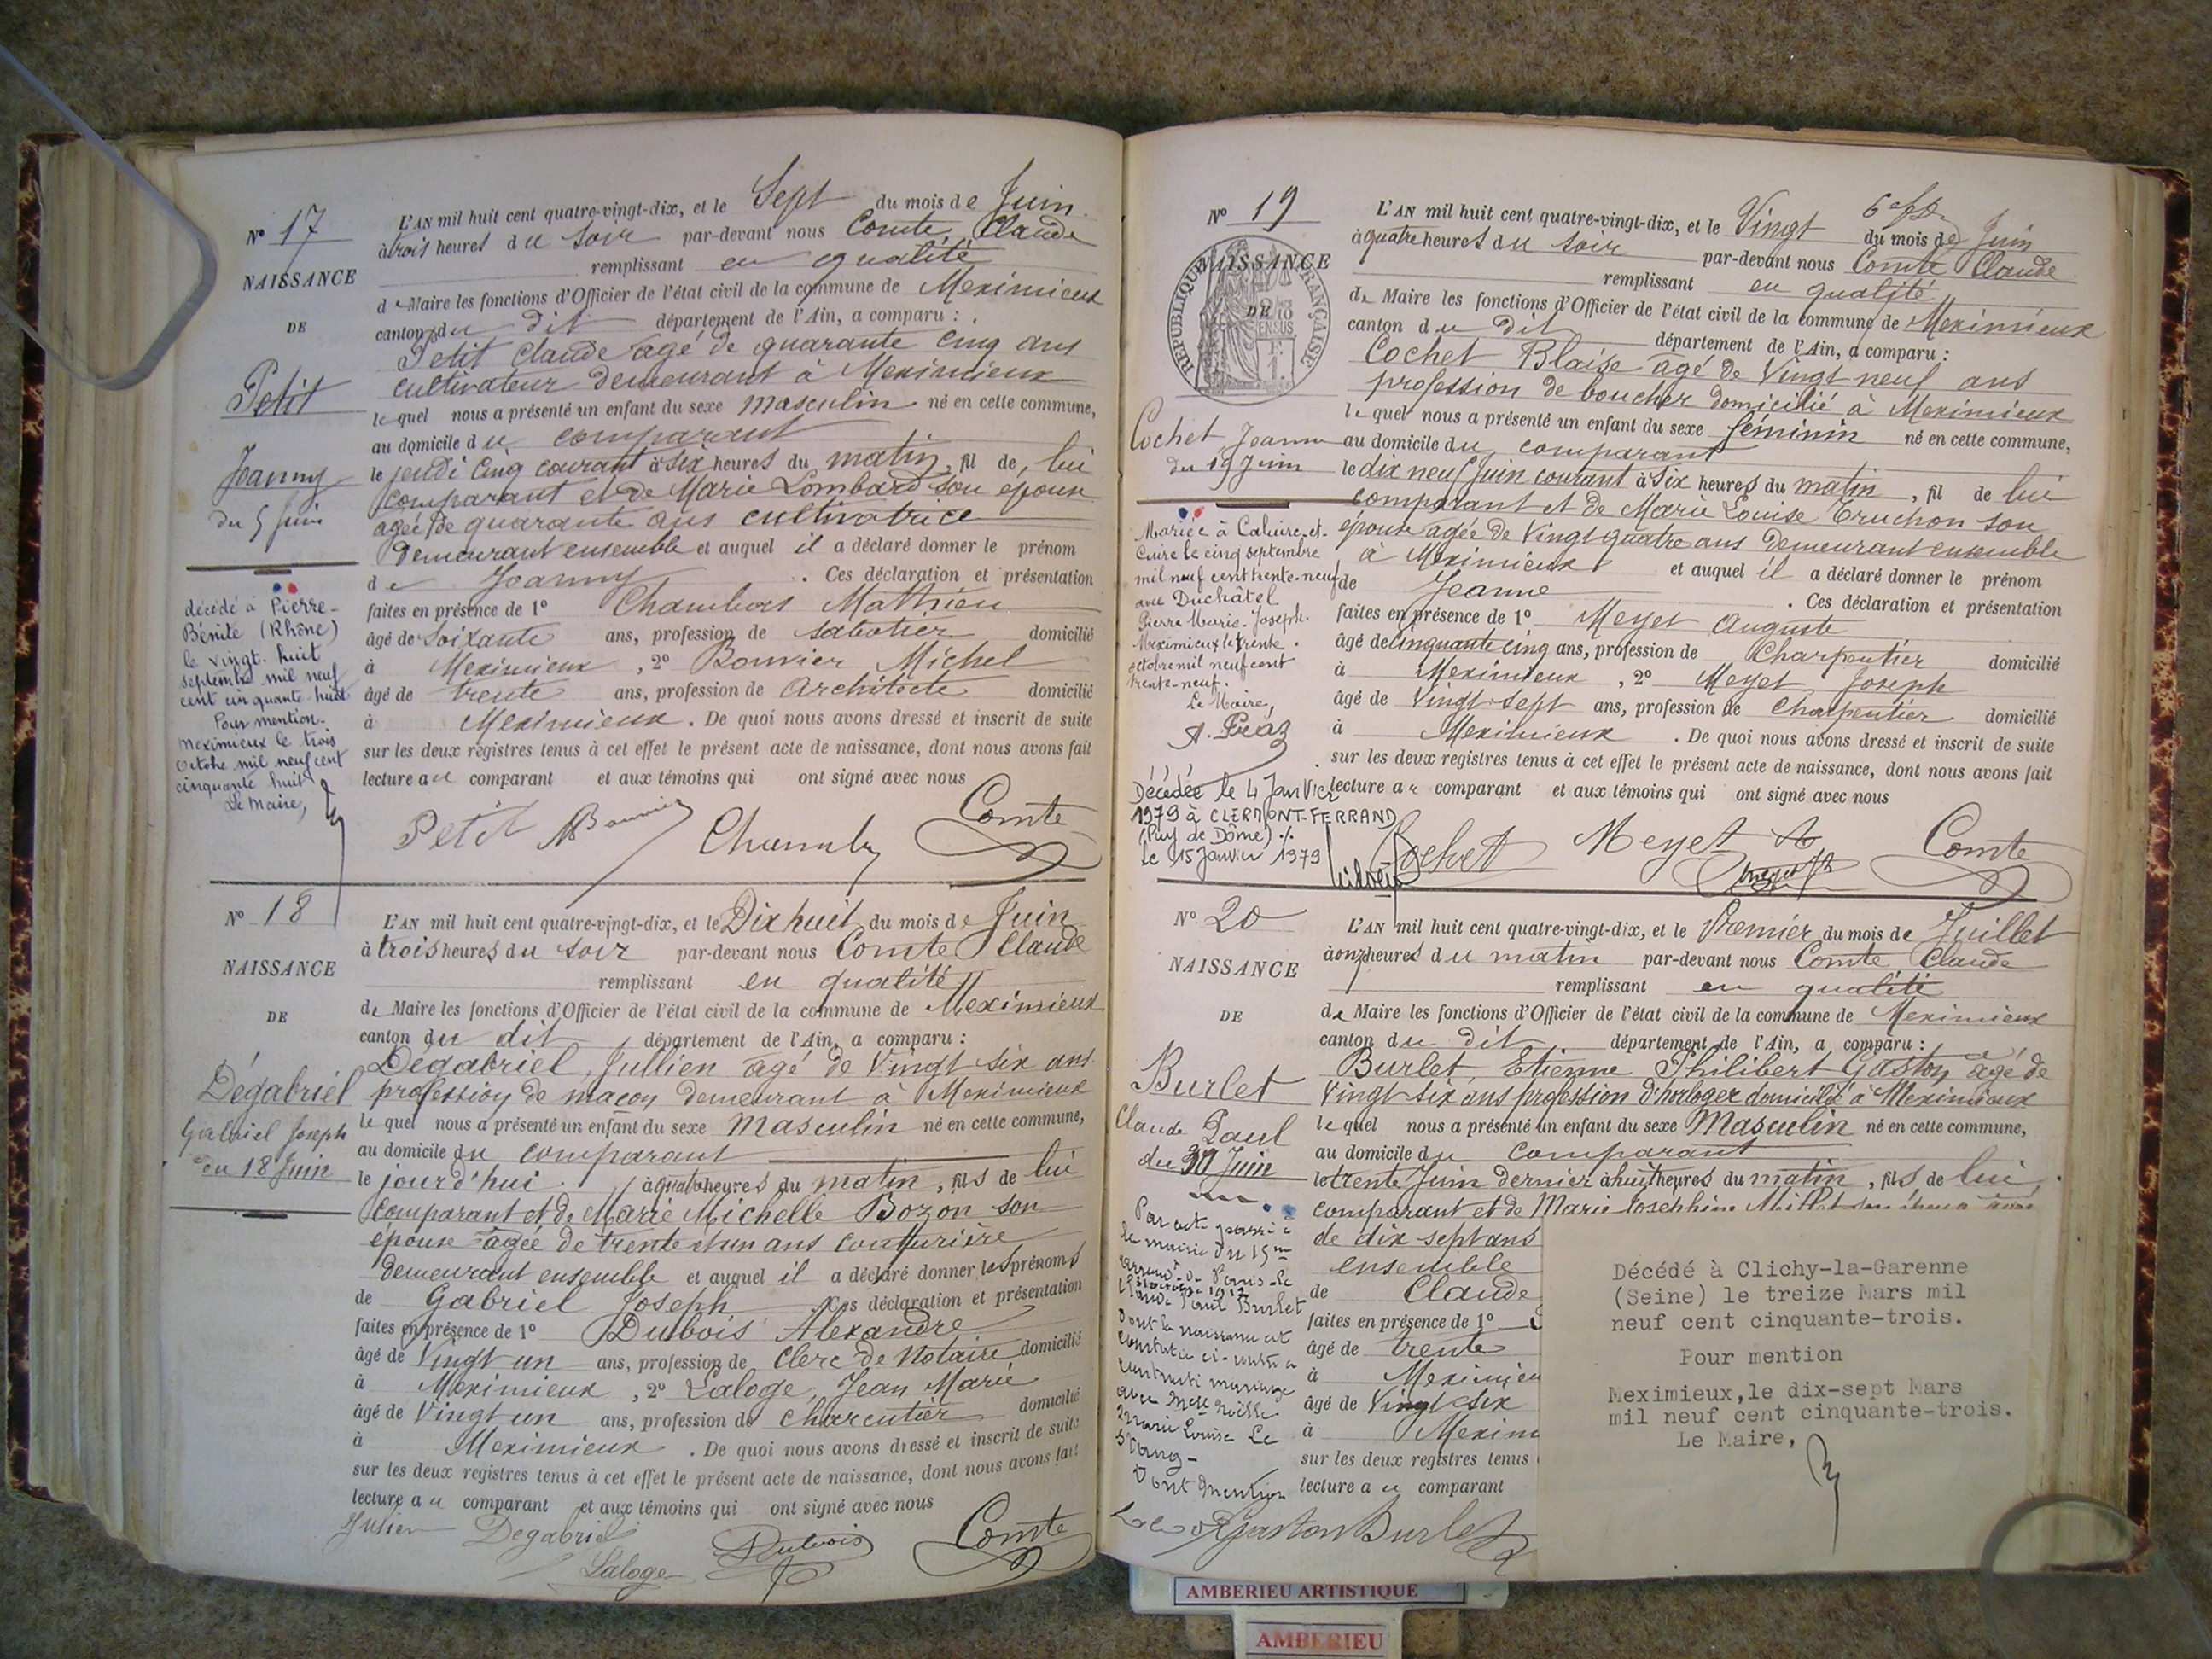 Nº 17
NAISSANCE
DE
Petit
Jeanny
du 5 Juin
décédé à Pierre-
Bénite (Rhône)
le vingt-huit
septembre mil neuf
cent cinquante huit
Pour mention.
Meximieux le trois
Octobre mil neuf cent
cinquante huit
Le Maire,
L'AN mil huit cent quatre-vingt-dix, et le Sept du mois de Juin
à trois heures du soir par-devant nous Comte Claude
remplissant en qualité
de Maire les fonctions d'Officier de l'état civil de la commune de Meximieux
canton du dit département de l'Ain, a comparu :
Petit Claude agé de quarante cinq ans
cultivateur demeurant à Meximieux
lequel nous a présenté un enfant du sexe masculin né en cette commune,
au domicile du comparant
le jeudi cinq courant à six heures du matin, fil de, lui
comparant et de Marie Lombard son épouse
agée de quarante ans cultivatrice
demeurant ensemble et auquel il a déclaré donner le prénom
de Joanny . Ces déclaration et présentation
faites en présence de 1º Chambors Mathieu
âgé de soixante ans, profession de sabotier domicilié
à Meximieux , 2º Bouvier Michel
âgé de trente ans, profession de Architecte domicilié
à Meximieux . De quoi nous avons dressé et inscrit de suite
sur les deux registres tenus à cet effet le présent acte de naissance, dont nous avons fait
lecture au comparant et aux témoins qui ont signé avec nous
Petit Comte
Nº 18
NAISSANCE
DE
Dégabriel
Gabriel Joseph
du 18 Juin
L'AN mil huit cent quatre-vingt-dix, et le Dix huit du mois de Juin
à trois heures du soir par-devant nous Comte Claude
remplissant en qualité
de Maire les fonctions d'Officier de l'état civil de la commune de Meximieux
canton du dit département de l'Ain, a comparu :
Dégabriel, Jullien agé de Vingt six ans
profession de maçon demeurant à Meximieux
lequel nous a présenté un enfant du sexe Masculin né en cette commune,
au domicile du comparant
le jourd'hui à quatre heures du matin, fils de lui
comparant et de Marie Michelle Bozon son
épouse agée de trente et un ans couturière
demeurant ensemble et auquel il a déclaré donner les prénoms
de Gabriel Joseph . Ces déclaration et présentation
faites en présence de 1º Dubois Alexandre
âgé de Vingt un ans, profession de Clerc de Notaire domicilié
à Meximieux , 2º Laloge, Jean Marie
âgé de Vingt un ans, profession de charcutier domicilié
à Meximieux . De quoi nous avons dressé et inscrit de suite
sur les deux registres tenus à cet effet le présent acte de naissance, dont nous avons fait
lecture au comparant et aux témoins qui ont signé avec nous
Julien Degabriel Dubois Comte
Laloge
Nº 19
NAISSANCE
DE
RÉPUBLIQUE FRANÇAISE
Cochet Jeanne
du 19 Juin
Mariée à Caluire-et-
Cuire le cinq septembre
mil neuf cent trente-neuf
avec Duchâtel
Pierre Marie-Joseph.
Meximieux le trente
octobre mil neuf cent
trente-neuf.
Le Maire,
Décédée le 4 Janvier
1979 à CLERMONT-FERRAND
(Puy de Dôme) ./.
Le 15 Janvier 1979
L'AN mil huit cent quatre-vingt-dix, et le Vingt du mois de Juin
à quatre heures du soir par-devant nous Comte Claude
remplissant en qualité
de Maire les fonctions d'Officier de l'état civil de la commune de Meximieux
canton du Dit département de l'Ain, a comparu :
Cochet Blaise agé de Vingt neuf ans
profession de boucher domicilié à Meximieux
lequel nous a présenté un enfant du sexe féminin né en cette commune,
au domicile du comparant
le dix neuf Juin courant à six heures du matin, fil de lui
comparant et de Marie Louise Truchon son
épouse agée de Vingt quatre ans demeurant ensemble
à Meximieux et auquel il a déclaré donner le prénom
de Jeanne . Ces déclaration et présentation
faites en présence de 1º Meyet Auguste
âgé de cinquante cinq ans, profession de Charpentier domicilié
à Meximieux , 2º Meyet Joseph
âgé de Vingt-sept ans, profession de Charpentier domicilié
à Meximieux . De quoi nous avons dressé et inscrit de suite
sur les deux registres tenus à cet effet le présent acte de naissance, dont nous avons fait
lecture au comparant et aux témoins qui ont signé avec nous
Cochet Meyet Comte
Nº 20
NAISSANCE
DE
Burlet
Claude Paul
du 30 Juin
L'AN mil huit cent quatre-vingt-dix, et le Premier du mois de Juillet
à onze heures du matin par-devant nous Comte Claude
remplissant en qualité
de Maire les fonctions d'Officier de l'état civil de la commune de Meximieux
canton du Dit département de l'Ain, a comparu :
Burlet, Etienne Philibert Gaston agé de
Vingt six ans profession d'horloger domicilié à Meximieux
lequel nous a présenté un enfant du sexe Masculin né en cette commune,
au domicile du comparant
le trente Juin dernier à huit heures du matin, fils de lui
comparant et de Marie Josephine
de dix sept ans
ensemble
de Claude
faites en présence de 1º
âgé de trente
à Meximieu
âgé de Vingt six
à Mexim
sur les deux registres tenus
lecture au comparant
Gaston Burlet
Par acte
la mairie du 15me
Paul Burlet
dont la naissance est
constatée ci-contre a
contracté mariage
avec Melle
Marie Louise Le
dont mention
Décédé à Clichy-la-Garenne
(Seine) le treize Mars mil
neuf cent cinquante-trois.
Pour mention
Meximieux,le dix-sept Mars
mil neuf cent cinquante-trois.
Le Maire,
AMBERIEU ARTISTIQUE
AMBERIEU